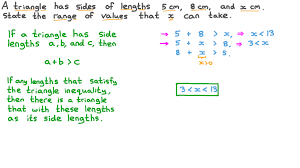 A triangle has sides of lengths 5 cm, 8 cm, and x cm.
State the range of values that x can take.
If a triangle has side
lengths a, b, and c, then
a + b > c
If any lengths that satisfy
the triangle inequality,
then there is a triangle
that with these lengths
as its side lengths.
→ 5 + 8 > x, ⇒ x < 13
→ 5 + x > 8, ⇒ 3 < x
8 + x > 5.
x > 0
3 < x < 13